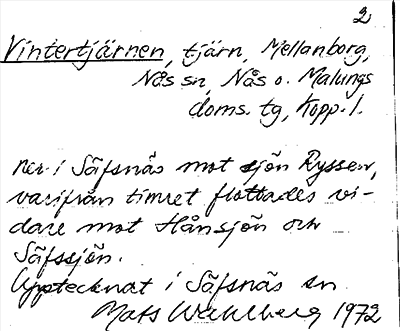 2
Vintertjärnen, tjärn, Mellanborg,
Nås sn, Nås o. Malungs
doms. tg, Kopp. l.
ner i Säfsnäs mot sjön Ryssen,
varifrån timret flottades vi-
dare mot Hånsjön och
Säfssjön.
Upptecknat i Säfsnäs sn
Mats Wahlberg 1972